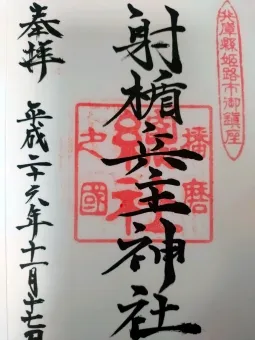 兵庫縣姫路市御鎮座
射楯兵主神社
播磨
之國
總社
奉拝
平成二十六年十一月廿七日